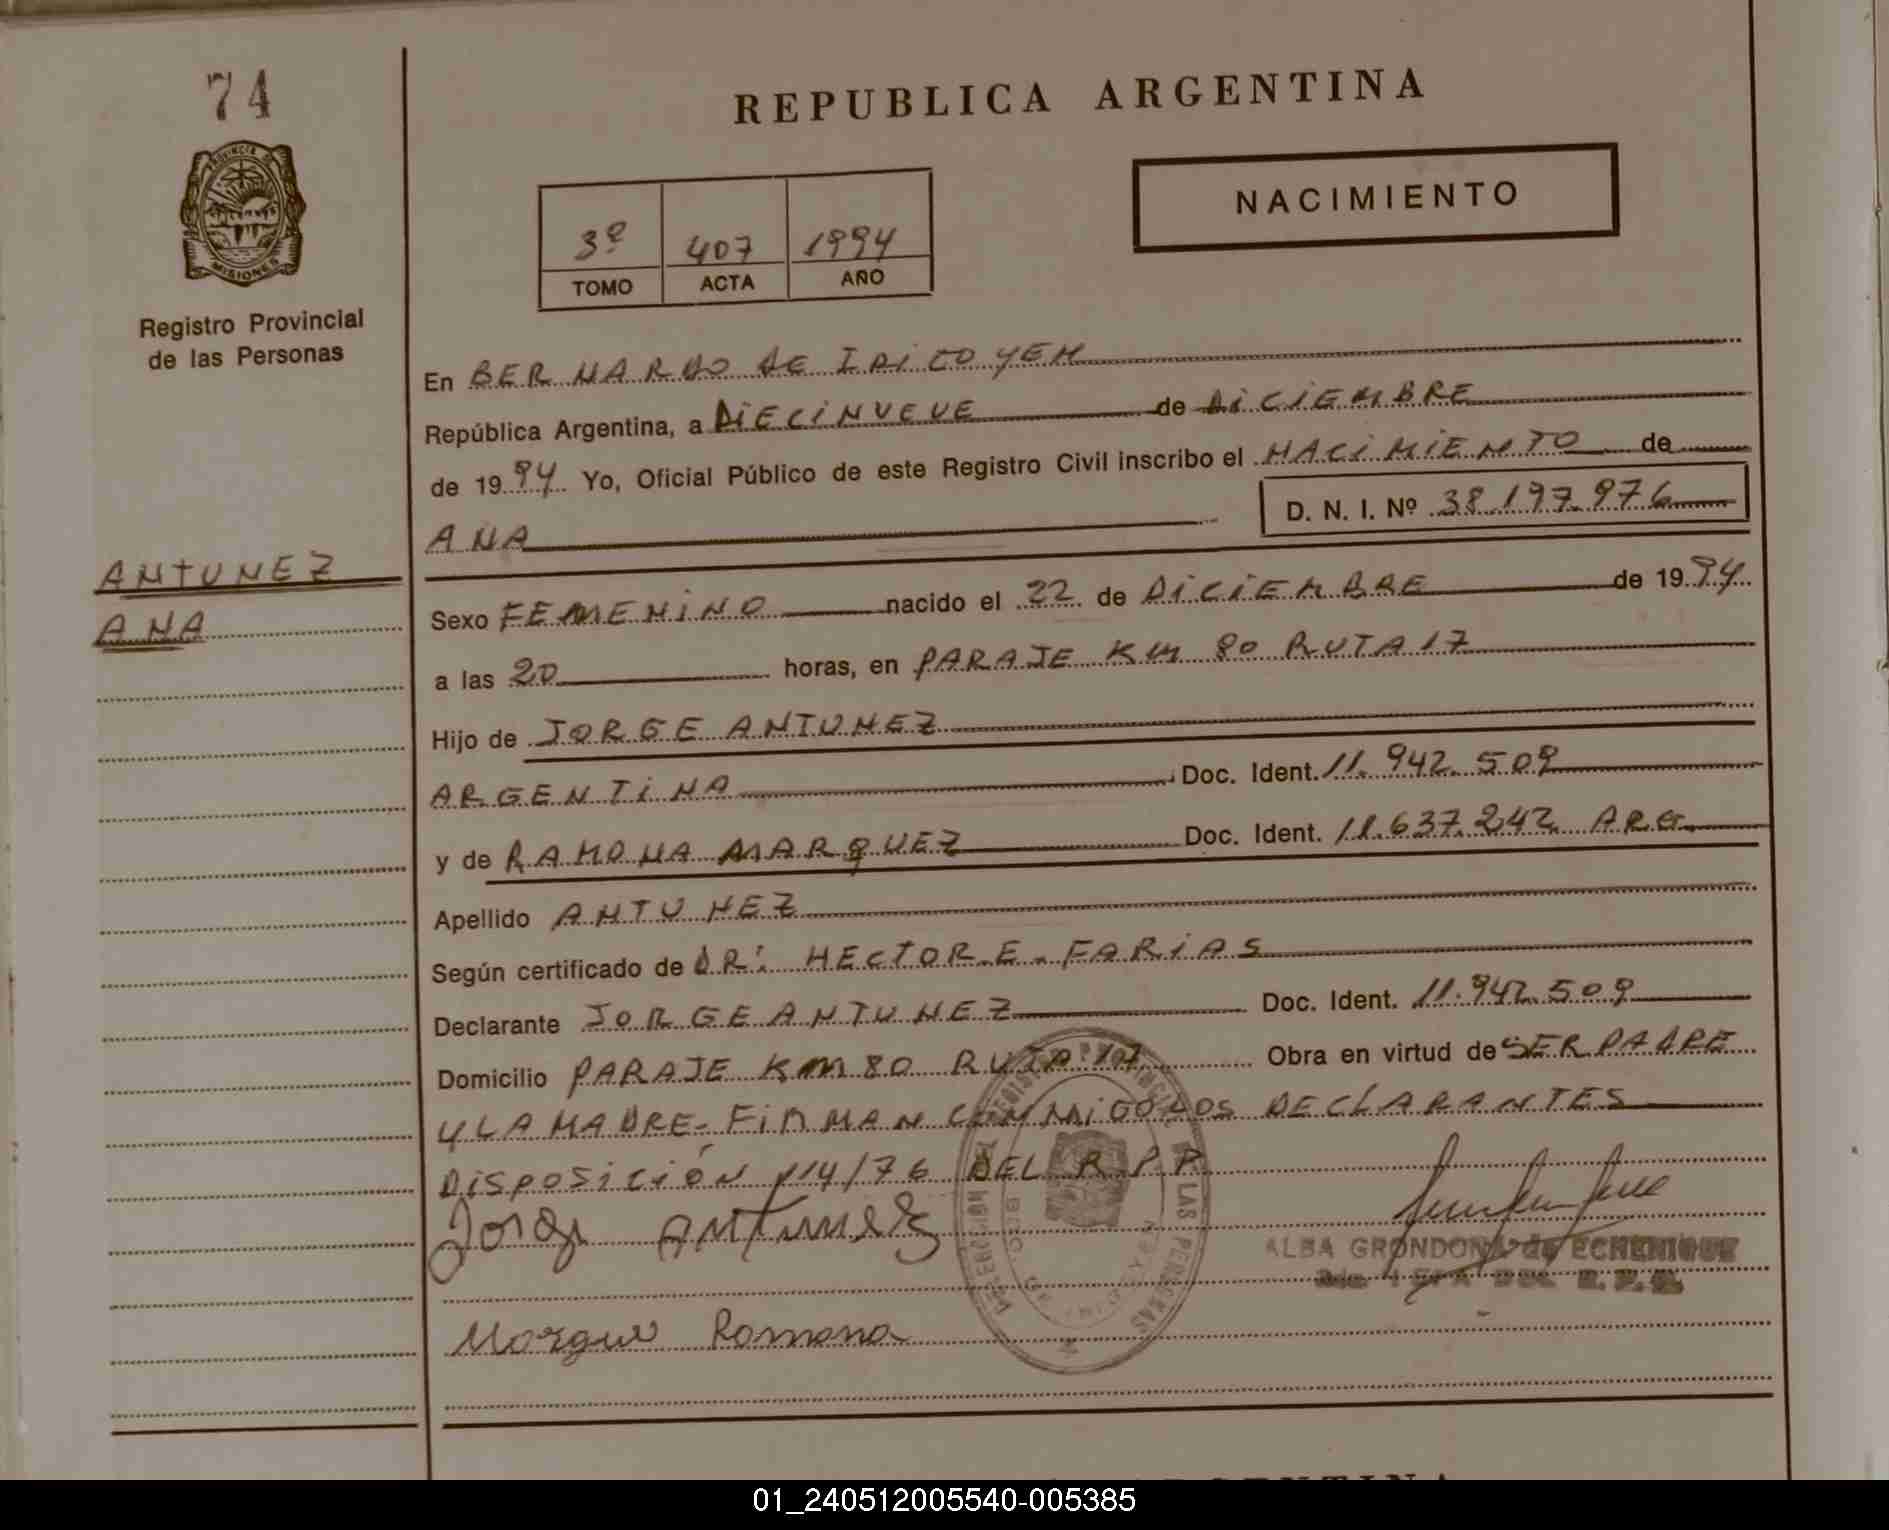 74
PROVINCIA DE
MISIONES
Registro Provincial
de las Personas
REPUBLICA ARGENTINA
NACIMIENTO
3º 407 1994
TOMO ACTA AÑO
En BERNARDO DE IRIGOYEN
República Argentina, a DIECINUEVE de DICIEMBRE
de 1994 Yo, Oficial Público de este Registro Civil inscribo el NACIMIENTO de
ANA D. N. I. Nº 38.197.976
ANTUNEZ
ANA
Sexo FEMENINO nacido el 22 de DICIEMBRE de 1994
a las 20 horas, en PARAJE KM 80 RUTA 17
Hijo de JORGE ANTUNEZ
ARGENTINA Doc. Ident. 11.942.509
y de RAMONA MARQUEZ Doc. Ident. 11.637.242 ARG.
Apellido ANTUNEZ
Según certificado de DR: HECTOR-E-FARIAS
Declarante JORGE ANTUNEZ Doc. Ident. 11.942.509
Domicilio PARAJE KM 80 RUTA 17 Obra en virtud de SER PADRE
Y LA MADRE-FIRMAN CONMIGO LOS DECLARANTES
DISPOSICIÓN 114/76 DEL R.P.P.
Jorge Antunez
ALBA GRONDONA de ECHENIQUE
Ramona
ARGENTINA
01_240512005540-005385